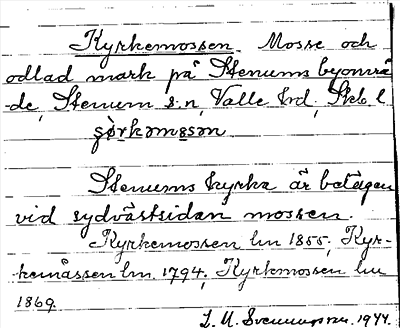 Kyrkemossen. Mosse och
odlad mark på Stenums byområ-
de, Stenum s:n, Valle hd, Skb. l.
Stenums kyrka är belägen
vid sydvästsidan mossen.
Kyrkemossen lm 1855; Kyr-
kemåssen lm 1794; Kyrkmossen lm
1869.